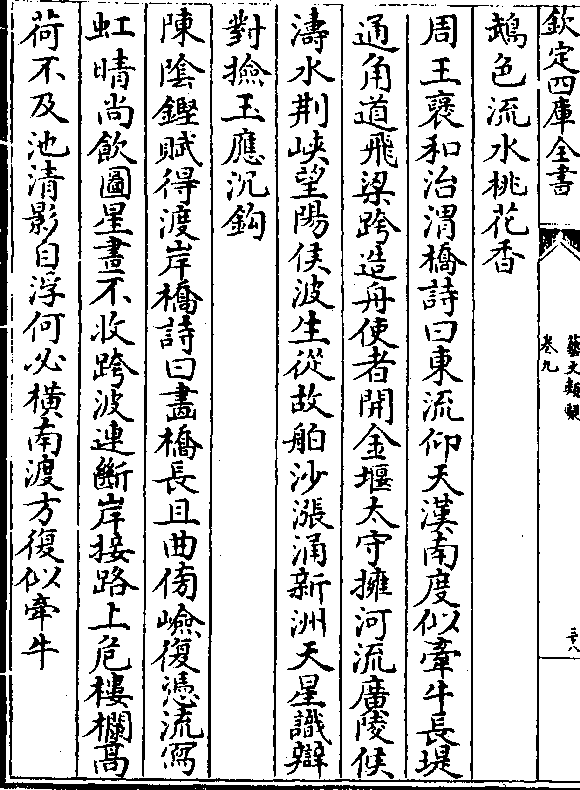 欽定四庫全書
藝文類聚
卷九
二十八
鵝色流水桃花香
周王褒和治渭橋詩曰東流仰天漢南度似牽牛長堤
通甬道飛梁跨造舟使者開金堰太守擁河流廣陵候
濤水荆峽望陽侯波生從故舶沙漲涌新洲天星識辯
對撿玉應沉鈎
陳陰鏗賦得渡岸橋詩曰畫橋長且曲傍嶮復憑流寫
虹晴尚飲圖星晝不收跨波連斷岸接路上危樓欄高
荷不及池清影自浮何必横南渡方復似牽牛